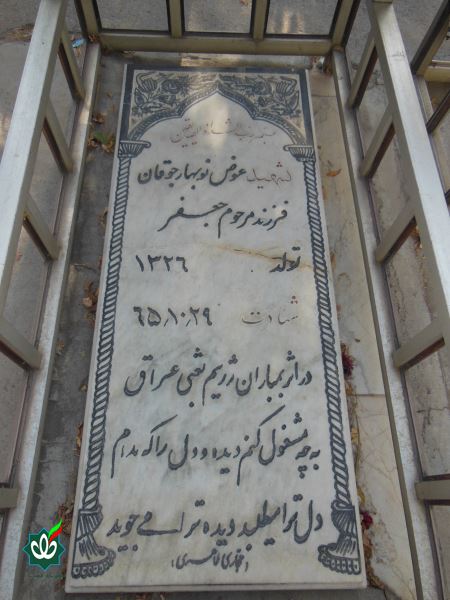 شهید عوض نوبهار جوقان
فرزند مرحوم جعفر
تولد ۱۳۲۶
شهادت ۶۵/۱۰/۲۹
در اثر بمباران رژیم بعثی عراق
به چه مشغول کنم دیده و دل را که مدام
دل ترا میطلبد دیده ترا می جوید